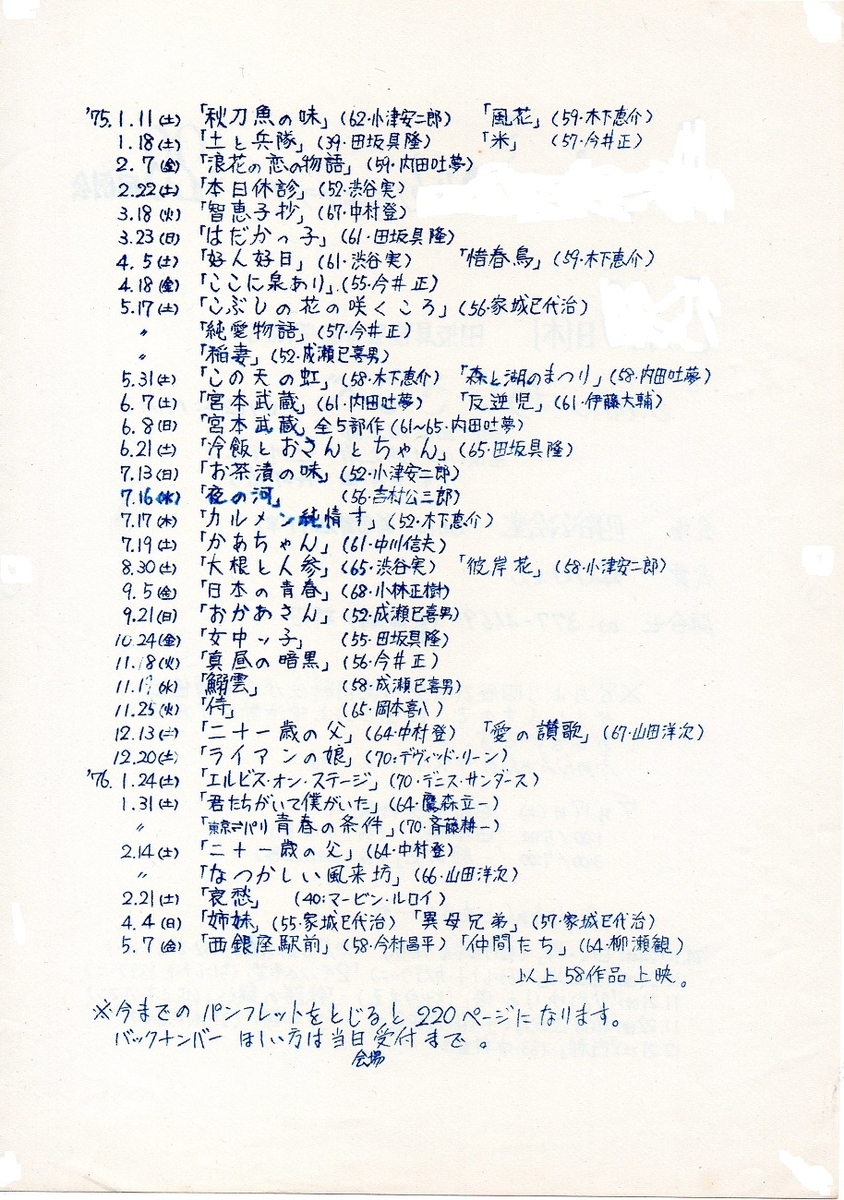 '75. 1. 11 (土) 「秋刀魚の味」 (62・小津安二郎) 「風花」 (59・木下恵介)
1. 18 (土) 「土と兵隊」 (39・田坂具隆) 「米」 (57・今井正)
2. 7 (金) 「浪花の恋の物語」 (59・内田吐夢)
2. 22 (土) 「本日休診」 (52・渋谷実)
3. 18 (火) 「智恵子抄」 (67・中村登)
3. 23 (日) 「はだかっ子」 (61・田坂具隆)
4. 5 (土) 「好人好日」 (61・渋谷実) 「惜春鳥」 (59・木下恵介)
4. 18 (金) 「ここに泉あり」 (55・今井正)
5. 17 (土) 「こぶしの花の咲くころ」 (56・家城巳代治)
〃 「純愛物語」 (57・今井正)
〃 「稲妻」 (52・成瀬巳喜男)
5. 31 (土) 「この天の虹」 (58・木下恵介) 「森と湖のまつり」 (58・内田吐夢)
6. 7 (土) 「宮本武蔵」 (61・内田吐夢) 「反逆児」 (61・伊藤大輔)
6. 8 (日) 「宮本武蔵」全5部作 (61~65・内田吐夢)
6. 21 (土) 「冷飯とおさんとちゃん」 (65・田坂具隆)
7. 13 (日) 「お茶漬の味」 (52・小津安二郎)
7. 16 (水) 「夜の河」 (56・吉村公三郎)
7. 17 (木) 「カルメン純情す」 (52・木下恵介)
7. 19 (土) 「かあちゃん」 (61・中川信夫)
8. 30 (土) 「大根と人参」 (65・渋谷実) 「彼岸花」 (58・小津安二郎)
9. 5 (金) 「日本の青春」 (68・小林正樹)
9. 21 (日) 「おかあさん」 (52・成瀬巳喜男)
10. 24 (金) 「女中ッ子」 (55・田坂具隆)
11. 18 (火) 「真昼の暗黒」 (56・今井正)
11. 19 (水) 「鰯雲」 (58・成瀬巳喜男)
11. 25 (火) 「侍」 (65・岡本喜八)
12. 13 (土) 「二十一歳の父」 (64・中村登) 「愛の讃歌」 (67・山田洋次)
12. 20 (土) 「ライアンの娘」 (70・デヴィッド・リーン)
'76. 1. 24 (土) 「エルビス・オン・ステージ」 (70・デニス・サンダース)
1. 31 (土) 「君たちがいて僕がいた」 (64・鷹森立一)
〃 「東京⇄パリ 青春の条件」 (70・斉藤耕一)
2. 14 (土) 「二十一歳の父」 (64・中村登)
〃 「なつかしい風来坊」 (66・山田洋次)
2. 21 (土) 「哀愁」 (40:マービン・ルロイ)
4. 4 (日) 「姉妹」 (55・家城巳代治) 「異母兄弟」 (57・家城巳代治)
5. 7 (金) 「西銀座駅前」 (58・今村昌平) 「仲間たち」 (64・柳瀬観)
以上 58作品 上映。
※今までの パンフレットをとじると 220ページになります。
バックナンバー ほしい方は当日受付まで。
会場